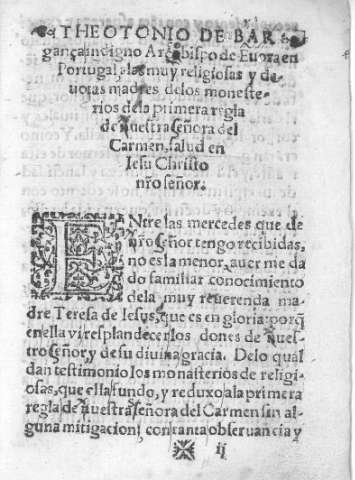 THEOTONIO DE BAR
gança indigno Arçobispo de Euora en
Portugal, a las muy religiosas y de-
uotas madres delos moneste-
rios dela primera regla
de nuestra señora del
Carmen, salud en
Iesu Christo
nr̃o señor.
ENtre las mercedes que de
nr̃o señor tengo recibidas,
no es la menor, auer me da
do familiar conocimiento
dela muy reuerenda ma
dre Teresa de Iesus, que es en gloria: porq̃
en ella vi resplandecer los dones de nues-
tro señor, y de su diuina gracia. Delo qual
dan testimonio los monasterios de religi-
osas, que ella fundo, y reduxo ala primera
regla de nuestra señora del Carmen sin al-
guna mitigacion, con tanta obseruancia y
ij